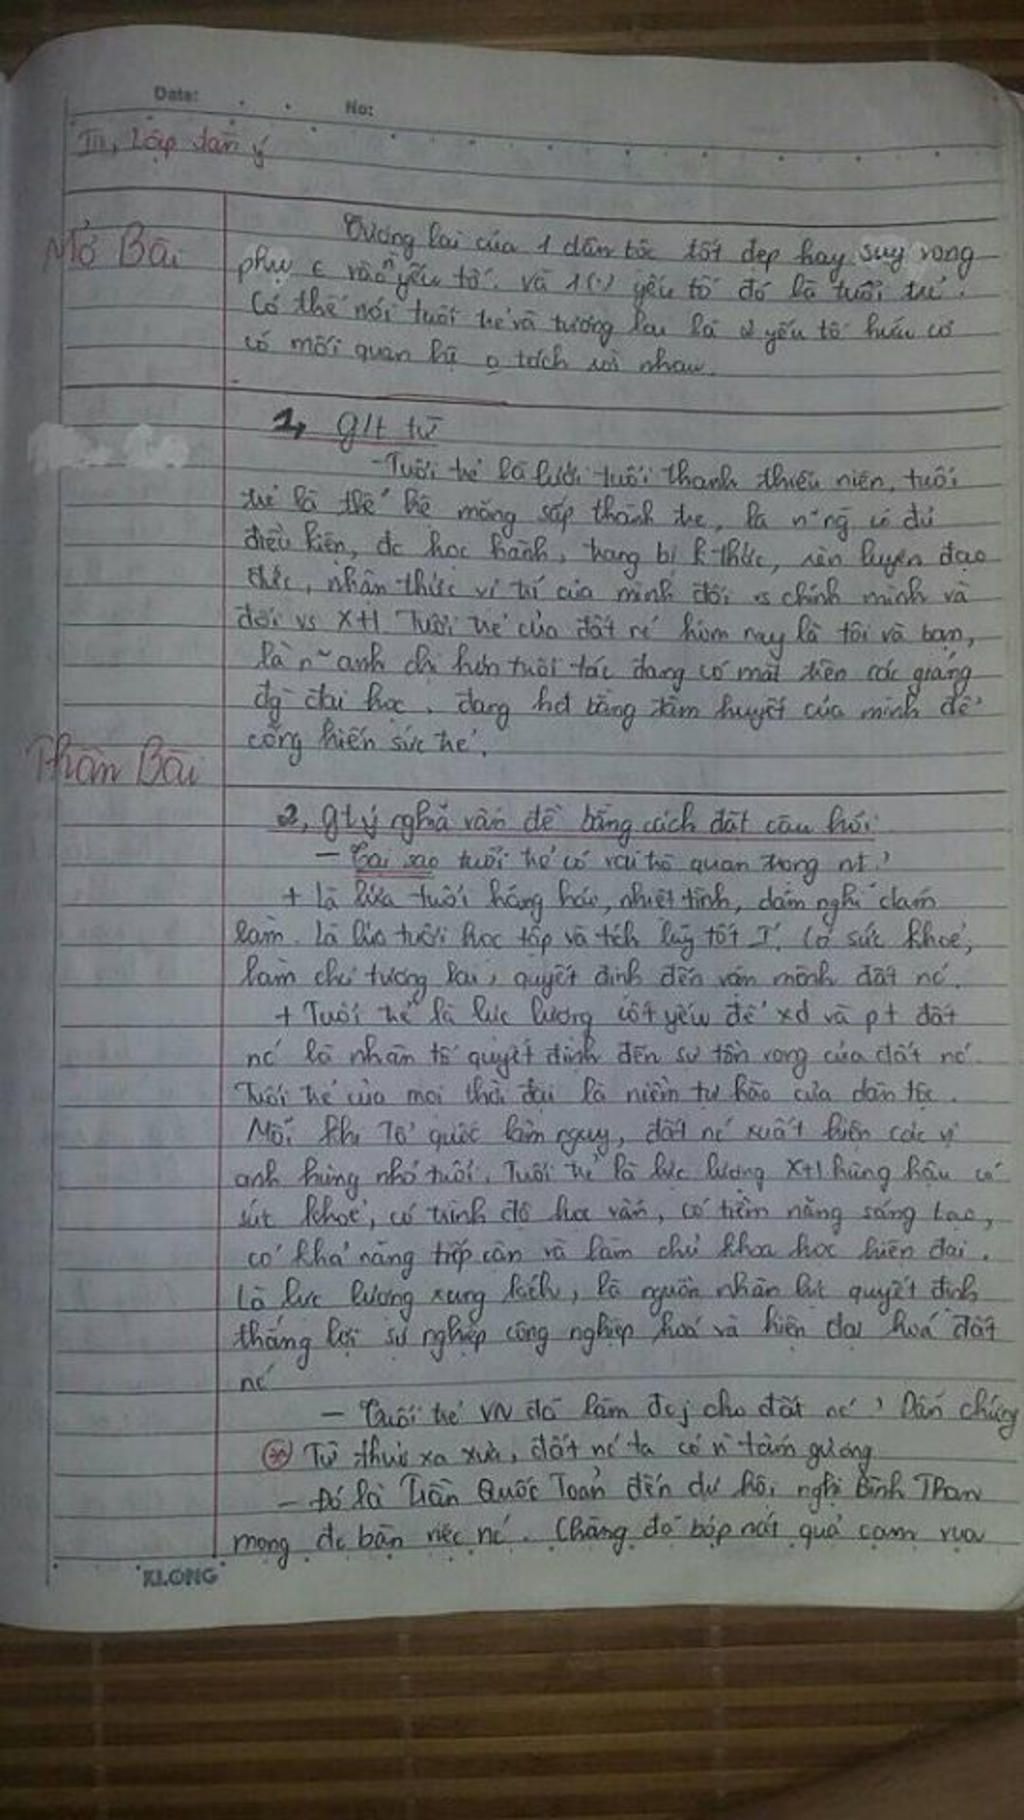 Date: No:
III, Lập dàn ý
Mở Bài
Tương lai của 1 dân tộc tốt đẹp hay suy vong
phụ c vào n yếu tố. và 1(.) yếu tố đó là tuổi trẻ.
Có thể nói tuổi trẻ và tương lai là 2 yếu tố hữu cơ
có mối quan hệ o tách rời nhau.
1, g/t từ
- Tuổi trẻ là lứa tuổi thanh thiếu niên, tuổi
trẻ là thế hệ măng sắp thành tre, là n~ng có đủ
điều kiện, đc học hành, trang bị k thức, rèn luyện đạo
đức, nhận thức vị trí của mình đối vs chính mình và
đối vs x+h Tuổi trẻ của đất nc hôm nay là tôi và bạn,
là n~ anh chị hơn tuổi tác đang có mặt trên các giảng
đg đại học, đang hđ bằng tâm huyết của mình để
cống hiến sức trẻ.
Thân Bài
2, gt ý nghĩa vấn đề bằng cách đặt câu hỏi
- Tại sao tuổi trẻ có vai trò quan trọng nt?
+ Là lứa tuổi hăng hái, nhiệt tình, dám nghĩ dám
làm. Là lứa tuổi học tập và tích lũy tốt I. Có sức khoẻ,
làm chủ tương lai, quyết định đến vận mệnh đất nc.
+ Tuổi trẻ là lực lượng cốt yếu để xd và pt đất
nc là nhân tố quyết định đến sự tồn vong của đất nc.
Tuổi trẻ của mọi thời đại là niềm tự hào của dân tộc.
Mỗi khi Tổ quốc lâm nguy, đất nc xuất hiện các vị
anh hùng nhỏ tuổi. Tuổi trẻ là lực lượng x+h hùng hậu có
sức khoẻ, có trình độ học vấn, có tiềm năng sáng tạo,
có khả năng tiếp cận và làm chủ khoa học hiện đại.
Là lực lượng xung kích, là nguồn nhân lực quyết định
thắng lợi sự nghiệp công nghiệp hoá và hiện đại hoá đất
nc
- Tuổi trẻ VN đã làm đc j cho đất nc? Dẫn chứng
Từ thuở xa xưa, đất nc ta có n~ tấm gương
- Đó là Trần Quốc Toản đến dự hội nghị Bình Than
mong đc bàn việc nc. Chàng đã bóp nát quả cam vua
KLONG